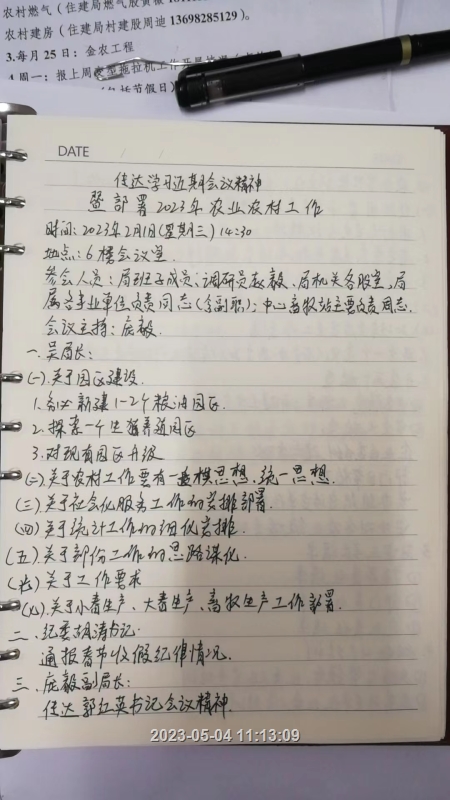 农村燃气（住建局燃气股黄
农村建房（住建局村建股周迪 13698285129）。
3.每月25日：金农工程
4.周一：报上周
DATE / /
传达学习近期会议精神
暨部署2023年农业农村工作
时间：2023年2月1日(星期三) 14:30
地点：6楼会议室.
参会人员：局班子成员、调研员赵毅、局机关各股室、局
属各事业单位负责同志(含副职)；中心畜牧站主要负责同志.
会议主持：庞毅.
一、吴局长：
(一).关于园区建设.
1.务必新建1-2个粮油园区.
2.探索一个生猪养殖园区
3.对现有园区升级
(二)关于农村工作要有一盘棋思想、统一思想.
(三)关于社会化服务工作的安排部署.
(四)关于统计工作的细化安排.
(五)关于部份工作的思路谋化.
(六)关于工作要求
(七).关于小春生产、大春生产、畜牧生产工作部署.
二、纪委胡清书记：
通报春节收假纪律情况.
三、庞毅副局长：
传达郭红英书记会议精神.
2023-05-04 11:13:09